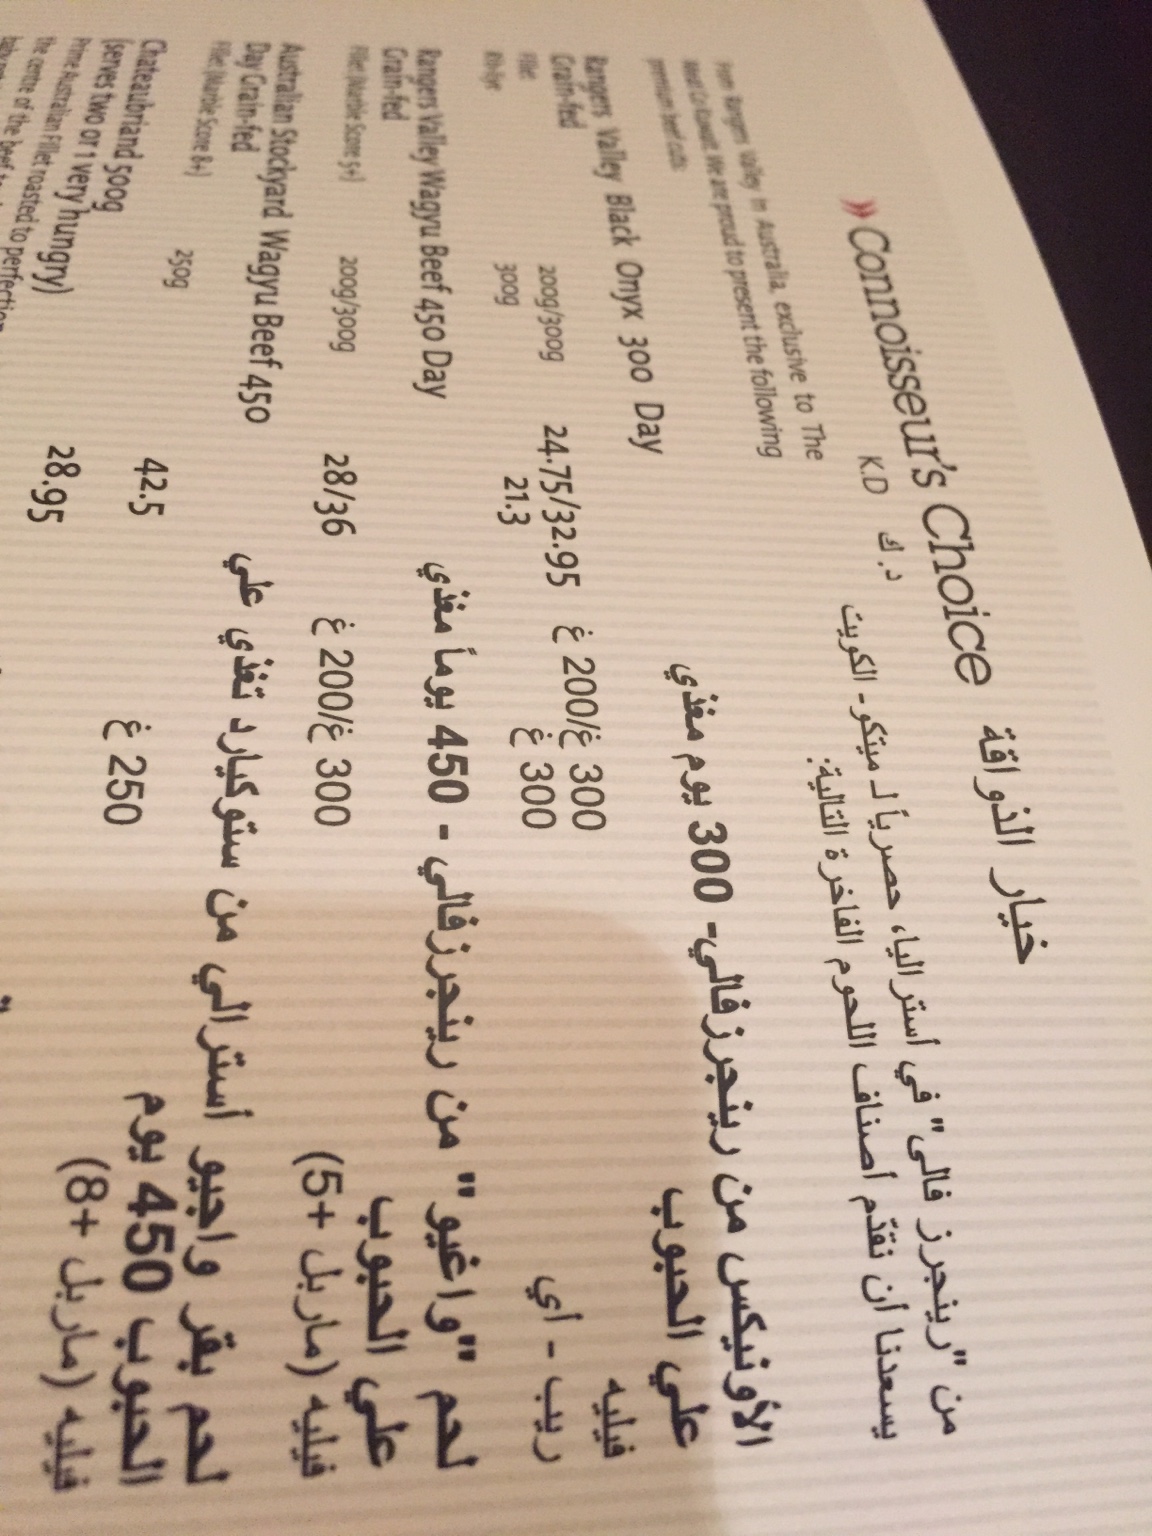 » Connoisseur's Choice خيار الذواقة
K.D د.ك
From Rangers Valley in Australia, exclusive to The
Meat Co Kuwait. We are proud to present the following
premium beef cuts:
من "رينجرز فالى" في أستراليا، حصرياً لـ ميتكو- الكويت
يسعدنا أن نقدّم أصناف اللحوم الفاخرة التالية:
Rangers Valley Black Onyx 300 Day
Grain-fed
الأونيكس من رينجرزفالي- 300 يوم مغذي
علي الحبوب
Fillet 200g/300g 24.75/32.95 300 غ/200 غ فيليه
Rib-Eye 300g 21.3 300 غ ريب - أي
Rangers Valley Wagyu Beef 450 Day
Grain-fed
لحم "واغيو" من رينجرزفالي - 450 يوماً مغذي
علي الحبوب
Fillet (Marble Score 5+) 200g/300g 28/36 300 غ/200 غ فيليه (ماربل +5)
Australian Stockyard Wagyu Beef 450
Day Grain-fed
لحم بقر واجيو أسترالي من ستوكيارد تغذي علي
الحبوب 450 يوم
Fillet (Marble Score 8+) 250g 42.5 250 غ فيليه (ماربل +8)
Chateaubriand 500g
(serves two or 1 very hungry) 28.95
Prime Australian Fillet roasted to perfection
the centre of the beef